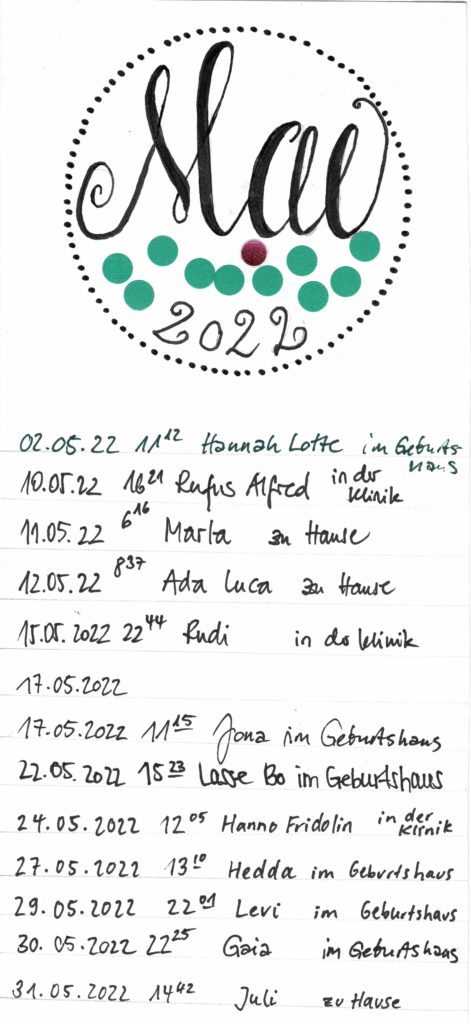 Mai
2022
02.05.22 11 12 Hannah Lotte im Geburts-
haus
10.05.22 16 21 Rufus Alfred in der
Klinik
11.05.22 6 16 Marla zu Hause
12.05.22 8 37 Ada Luca zu Hause
15.05.2022 22 44 Rudi in der Klinik
17.05.2022
17.05.2022 11 15 Jona im Geburtshaus
22.05.2022 15 23 Lasse Bo im Geburtshaus
24.05.2022 12 05 Hanno Fridolin in der
Klinik
27.05.2022 13 10 Hedda im Geburtshaus
29.05.2022 22 01 Levi im Geburtshaus
30.05.2022 22 25 Gaia im Geburtshaus
31.05.2022 14 42 Juli zu Hause